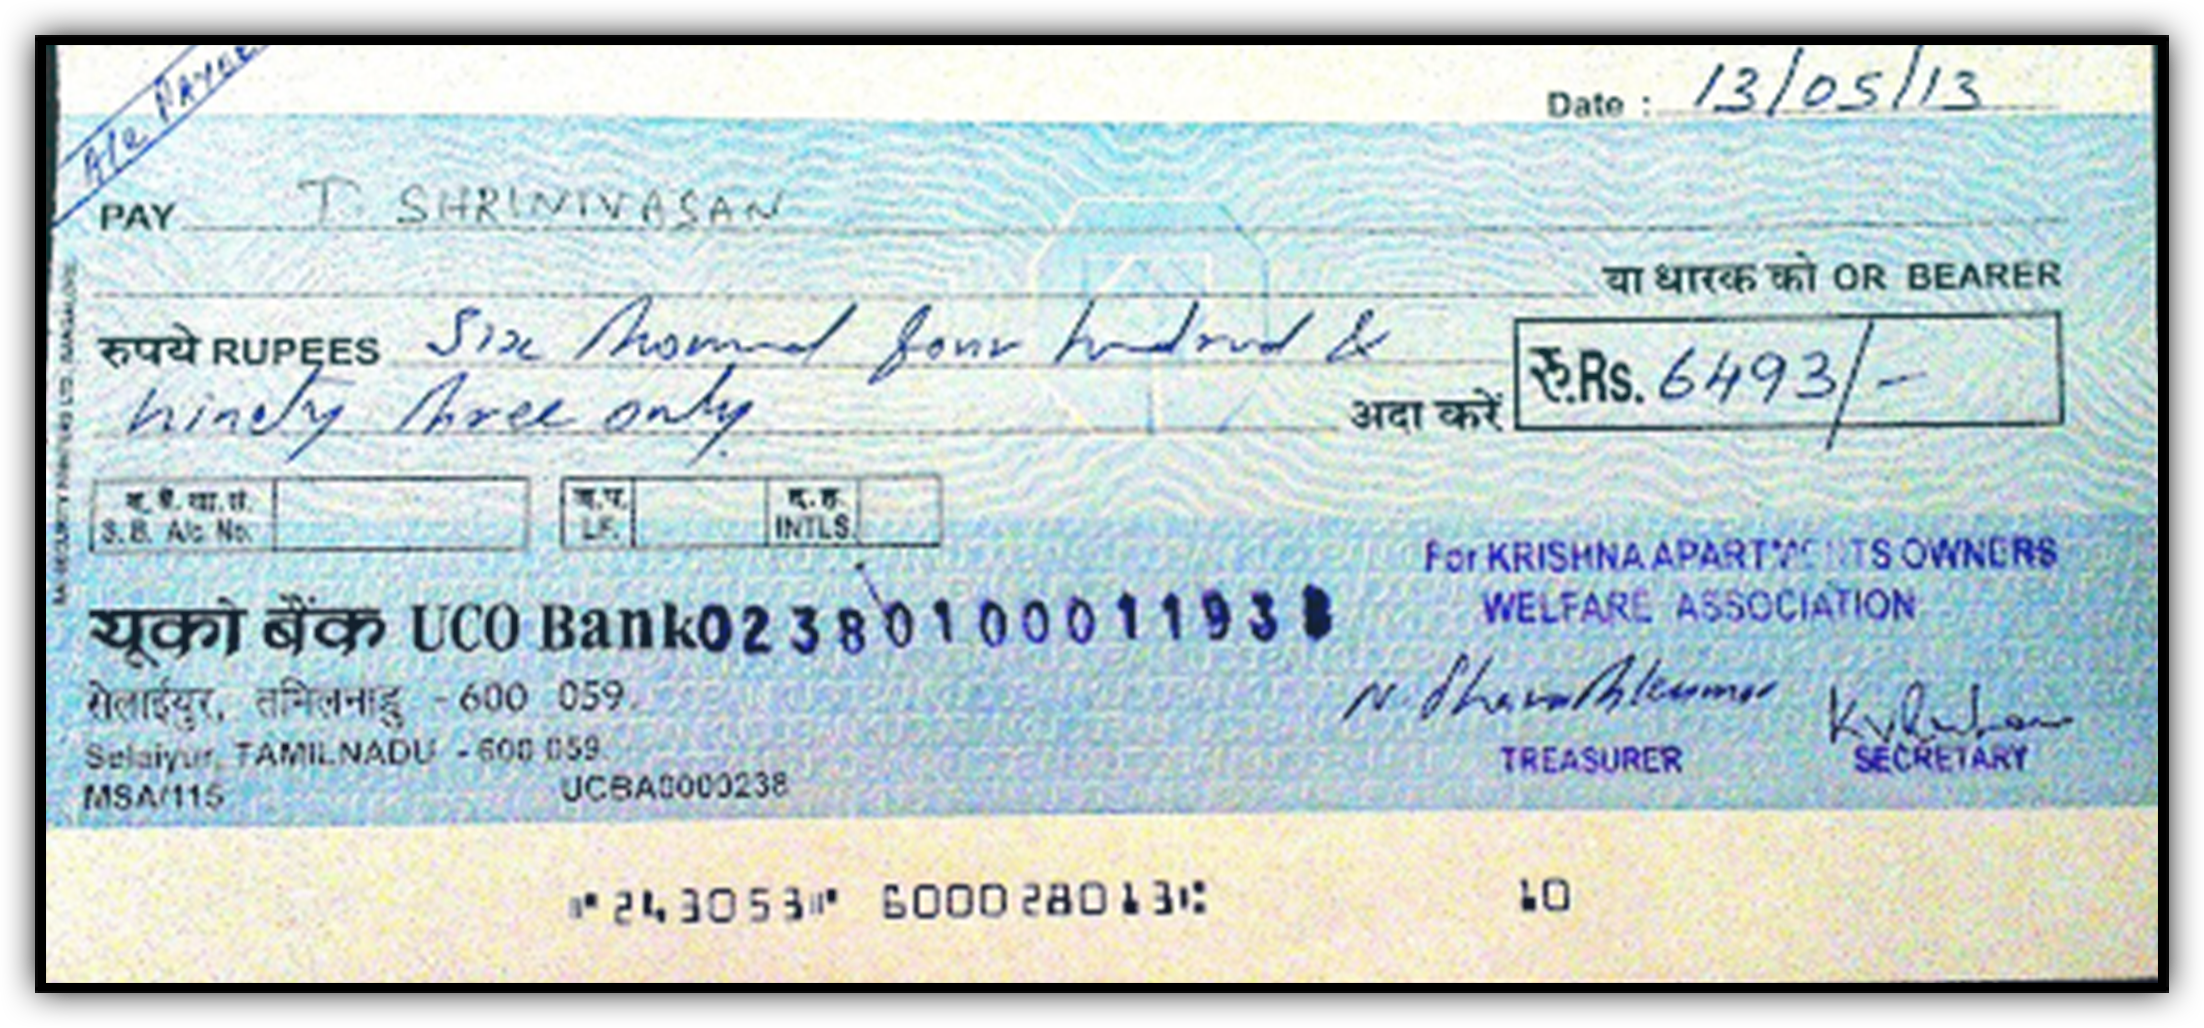 A/c Payee
Date : 13/05/13
PAY T. SHRINIVASAN
या धारक को OR BEARER
रुपये RUPEES Six thousand four hundred &
ninety three only.
अदा करें रु.Rs. 6493/-
ब.बै.खा.सं.
S.B. A/c No.
LF.
INTLS.
For KRISHNA APARTMENTS OWNERS
WELFARE ASSOCIATION
यूको बैंक UCO Bank 023801000119 3
सेलाईयुर, तमिलनाडु - 600 059.
Selaiyur, TAMILNADU - 600 059.
MSA/115
UCBA0000238
TREASURER
SECRETARY
⑈243053⑈ 600028013⑆ 10